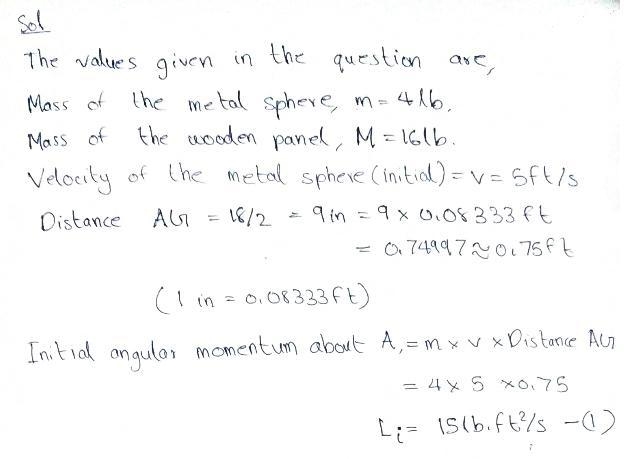 Sol
The values given in the question are,
Mass of the metal sphere, m = 4lb.
Mass of the wooden panel, M = 16lb.
Velocity of the metal sphere (initial) = v = 5ft/s
Distance AG = 18/2 = 9in = 9 x 0.08333 ft
= 0.74997 ≈ 0.75ft
(1 in = 0.08333ft)
Initial angular momentum about A, = m x v x Distance AG
= 4 x 5 x 0.75
Li = 15lb.ft²/s - (1)